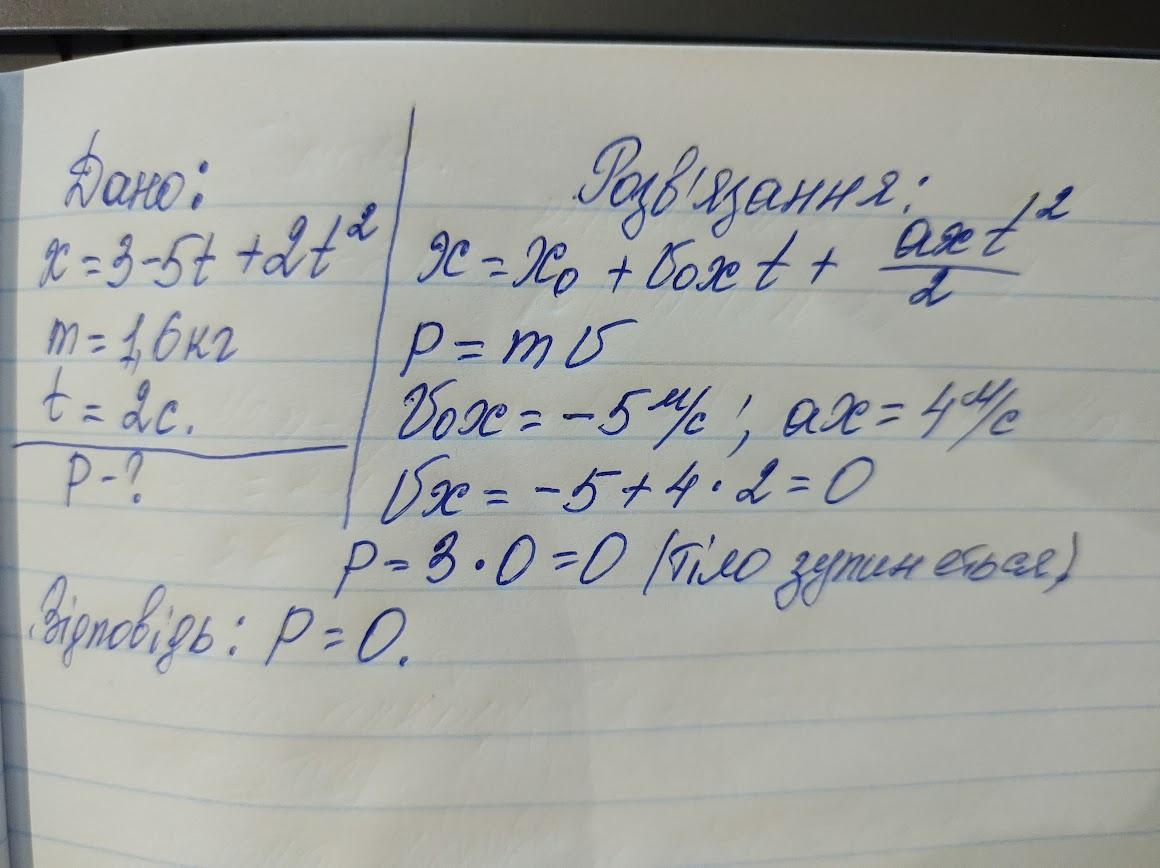 Дано:
x = 3 - 5t + 2t²
m = 1,6 кг
t = 2с.
p - ?
Розв'язання:
x = x₀ + v₀ₓt + aₓt²/2
p = mv
v₀ₓ = -5 м/с; aₓ = 4 м/с
vₓ = -5 + 4 · 2 = 0
p = 3 · 0 = 0 (тіло зупинеться)
Відповідь: p = 0.